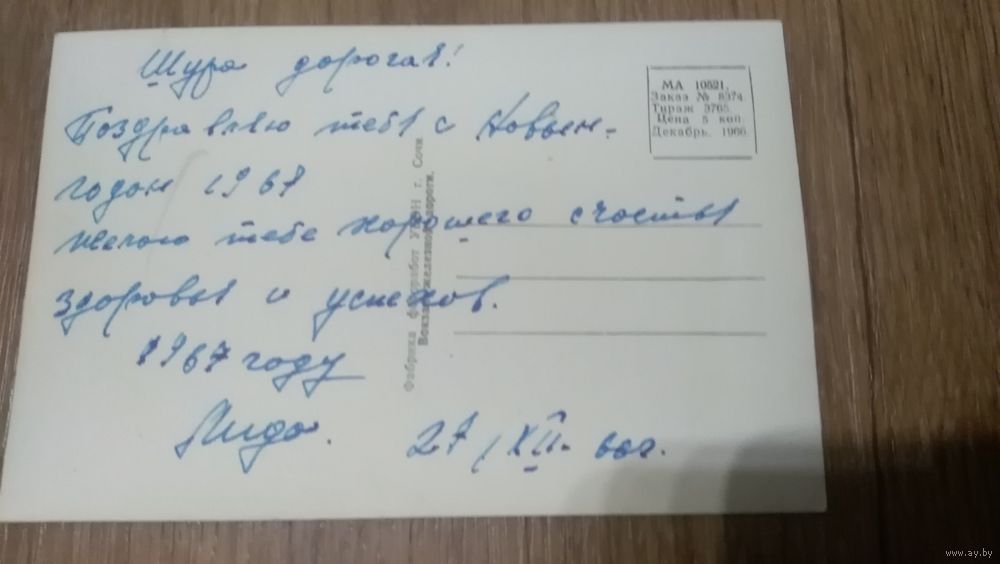 Шура дорогая!
Поздравляю тебя с Новым
годом 1967
желаю тебе хорошего счастья
здоровья и успехов.
1967 году
Лида.
27/XII-66г.
МА 10521.
Заказ № 8374
Тираж 3765.
Цена 5 коп.
Декабрь. 1966
Фабрика фоторабот УПОН г. Сочи
Вокзал железной дороги.
www.ay.by